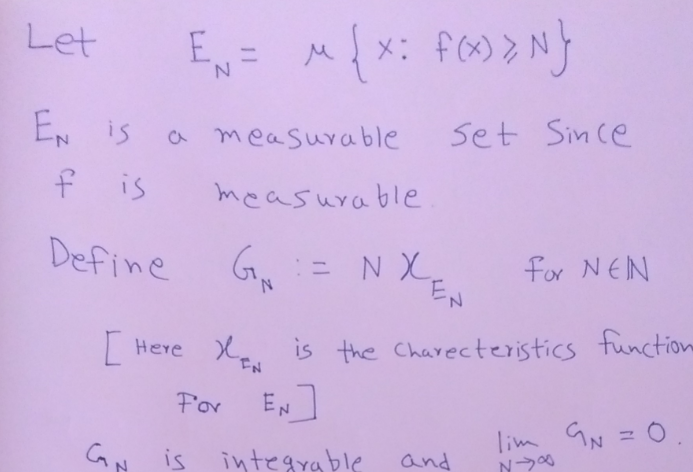 Let E_N = μ{x: f(x) ⩾ N}
E_N is a measurable set since
f is measurable.
Define G_N := N χ_{E_N} for N ∈ ℕ
[Here χ_{E_N} is the charecteristics function
For E_N]
G_N is integrable and lim_{N→∞} G_N = 0.